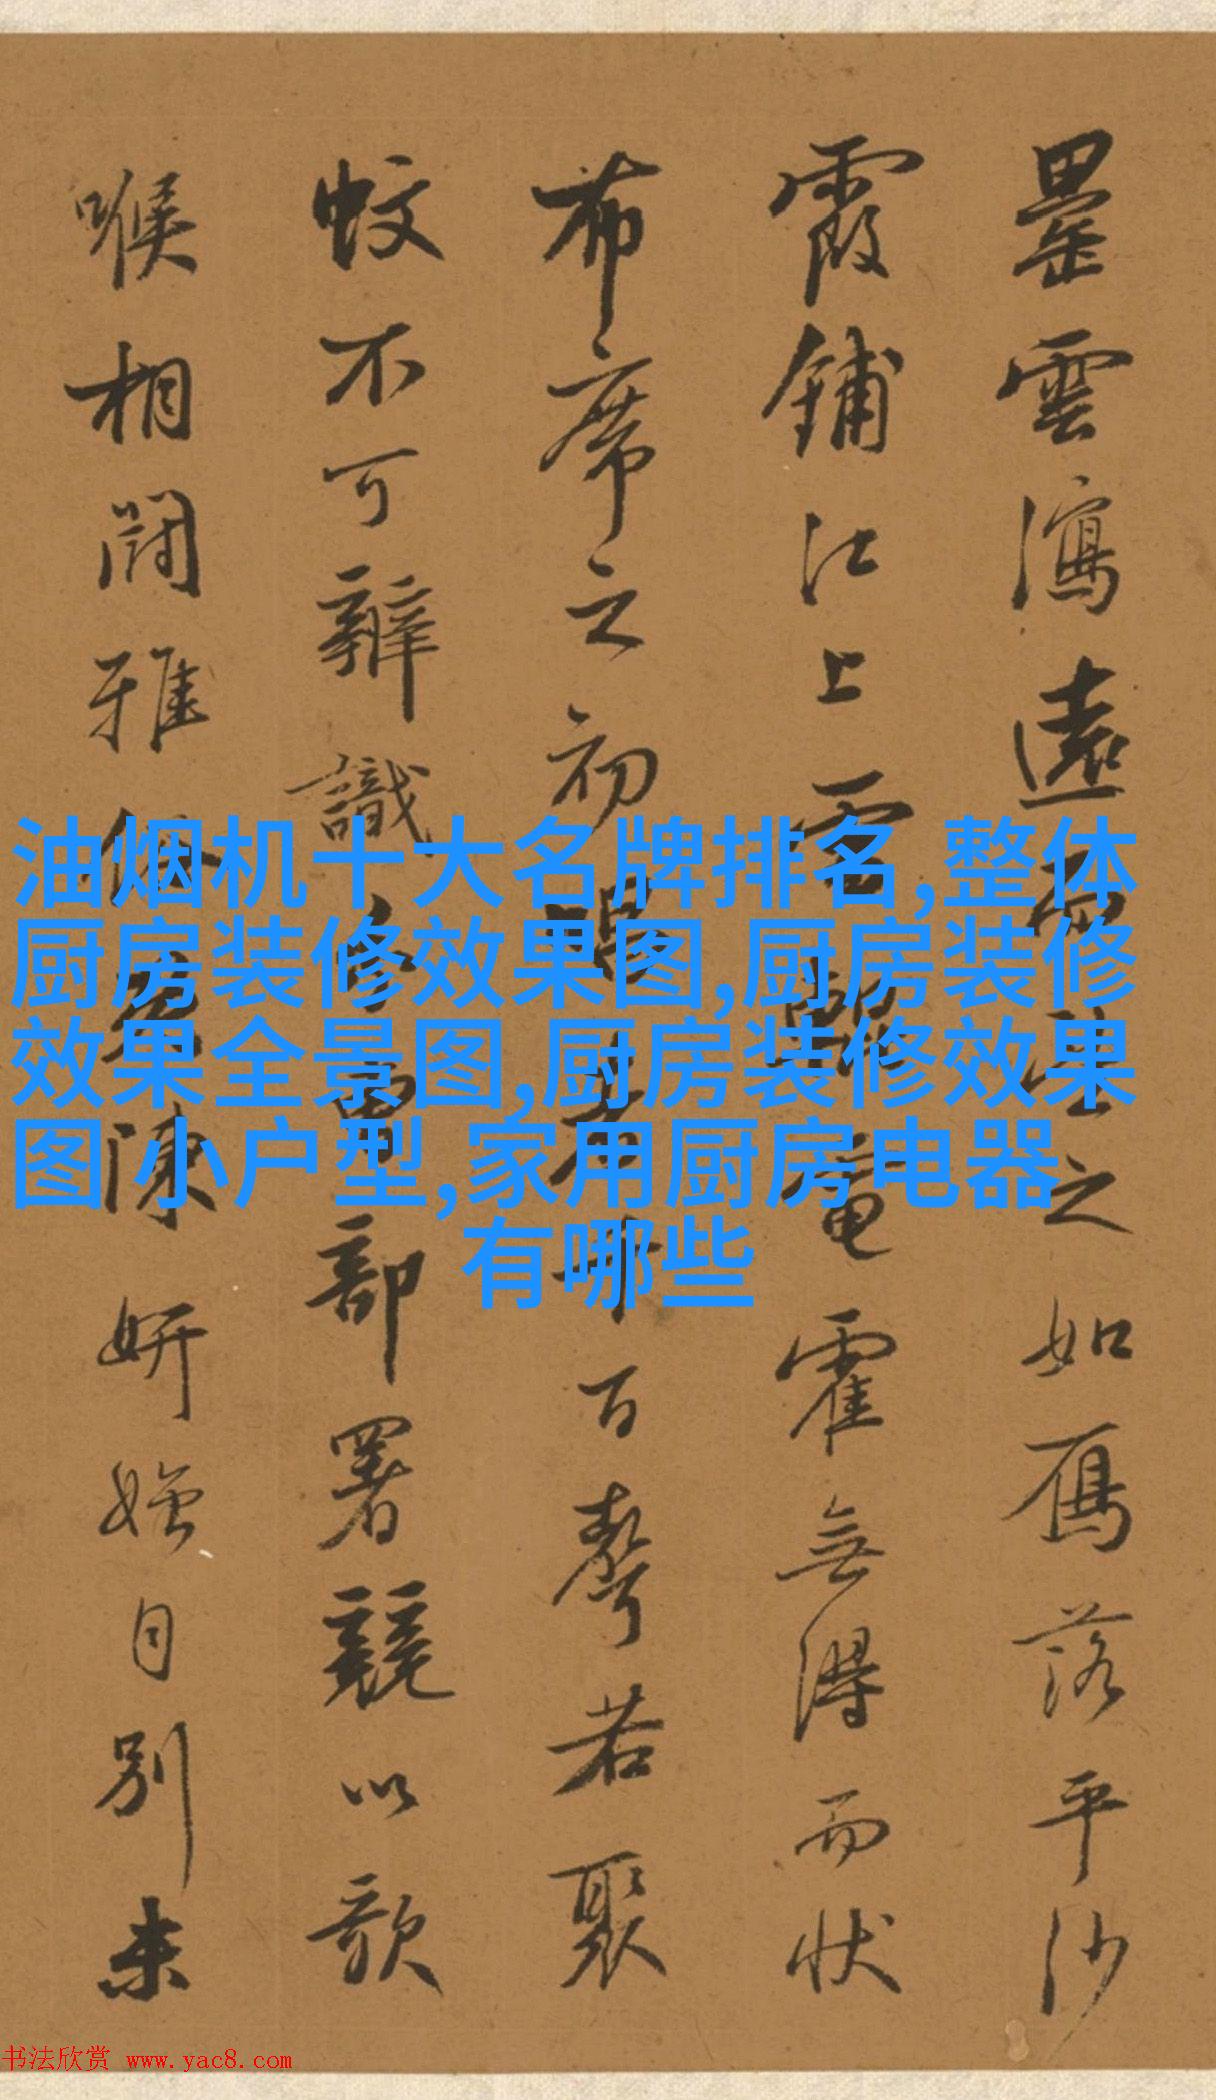 罍雲瀉遠而望之如鴈落平沙
霞鋪江上雷輥電霍無得而狀
布席之初唱者千百聲若聚
蚊不可辨識分曹部署競以歌
喉相鬪雅俗既陳妍媸自別未
油烟机十大名牌排名,整体
厨房装修效果图,厨房装修
效果全景图,厨房装修效果
图 小户型,家用厨房电器
有哪些
书法欣赏 www.yac8.com